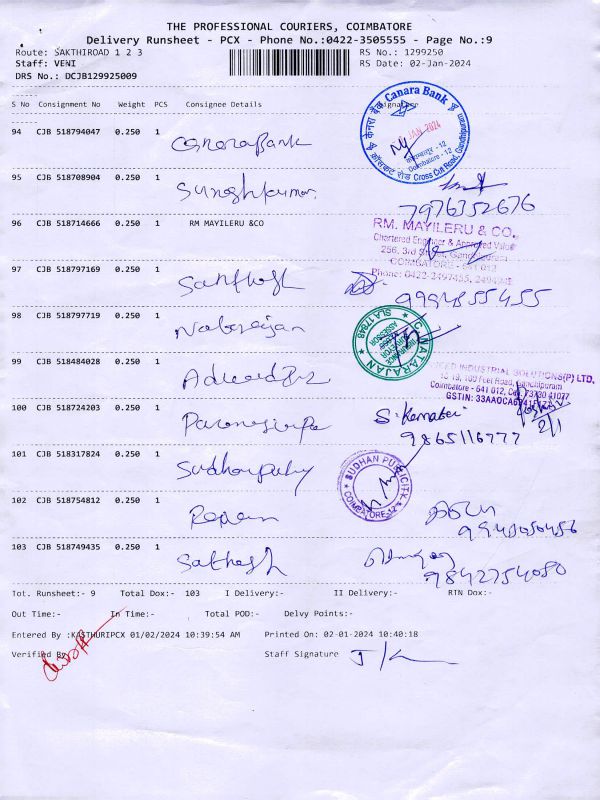 THE PROFESSIONAL COURIERS, COIMBATORE
Delivery Runsheet - PCX - Phone No.:0422-3505555 - Page No.:9
Route: SAKTHIROAD 1 2 3 RS No.: 1299250
Staff: VENI RS Date: 02-Jan-2024
DRS No.: DCJB129925009
S No Consignment No Weight PCS Consignee Details Signature
94 CJB 518794047 0.250 1 Canara Bank
Canara Bank
केनरा बैंक
JAN 2024
Coimbatore - 12
Cross Cut Road, Gandhipuram
95 CJB 518708904 0.250 1 Sureshkumar
7976352676
96 CJB 518714666 0.250 1 RM MAYILERU &CO
RM. MAYILERU & CO.,
Chartered Engineer & Approved Valuer
256, 3rd Street, Gandhipuram
COIMBATORE - 641 012
Phone: 0422-2497455, 249494
97 CJB 518797169 0.250 1 Santhosh
9994855455
98 CJB 518797719 0.250 1 Natarajan
C. NATARAJAN
SLA 17848
INSURANCE
SURVEYOR
ASSESSOR
99 CJB 518484028 0.250 1
INDUSTRIAL SOLUTIONS(P) LTD.
100 Feet Road, Gandhipuram
Coimbatore - 641 012, Cell: 73730 41077
GSTIN: 33AAOCA
2/1
100 CJB 518724203 0.250 1
9865116777
101 CJB 518317824 0.250 1
SUDHAN PUBLICITY
COIMBATORE-12
102 CJB 518754812 0.250 1
103 CJB 518749435 0.250 1 Sathesh
9842754080
Tot. Runsheet:- 9 Total Dox:- 103 I Delivery:- II Delivery:- RTN Dox:-
Out Time:- In Time:- Total POD:- Delvy Points:-
Entered By :KASTHURIPCX 01/02/2024 10:39:54 AM Printed On: 02-01-2024 10:40:18
Verified By Staff Signature